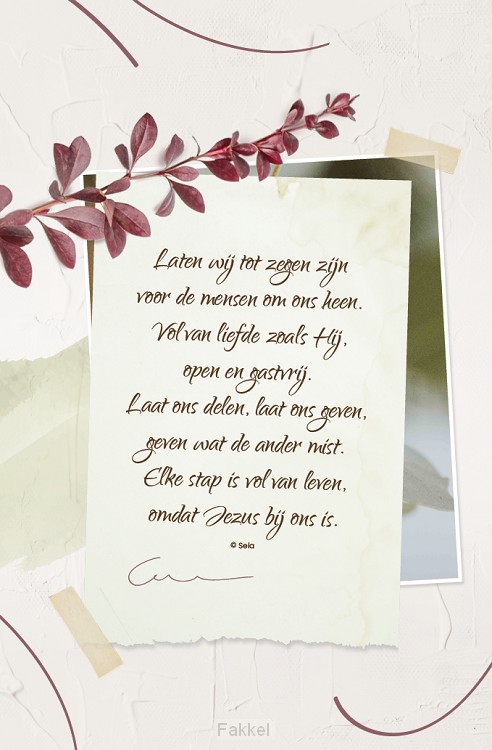 Laten wij tot zegen zijn
voor de mensen om ons heen.
Vol van liefde zoals Hij,
open en gastvrij.
Laat ons delen, laat ons geven,
geven wat de ander mist.
Elke stap is vol van leven,
omdat Jezus bij ons is.
© Sela
Fakkel